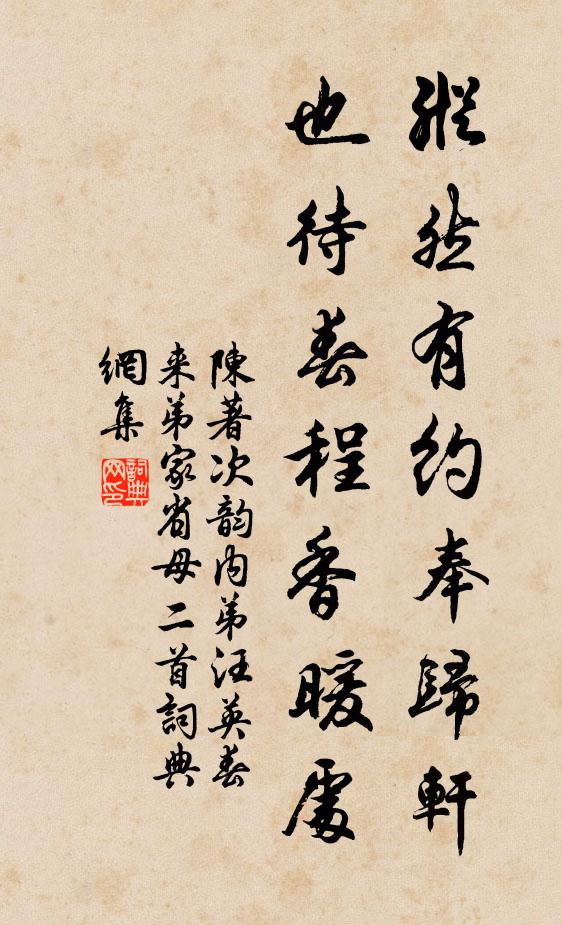 縱然有約奉歸軒
也待春程香暖處
陳著次韵内弟汪英春
来弟家省母二首詞典
網集
詞典
网印